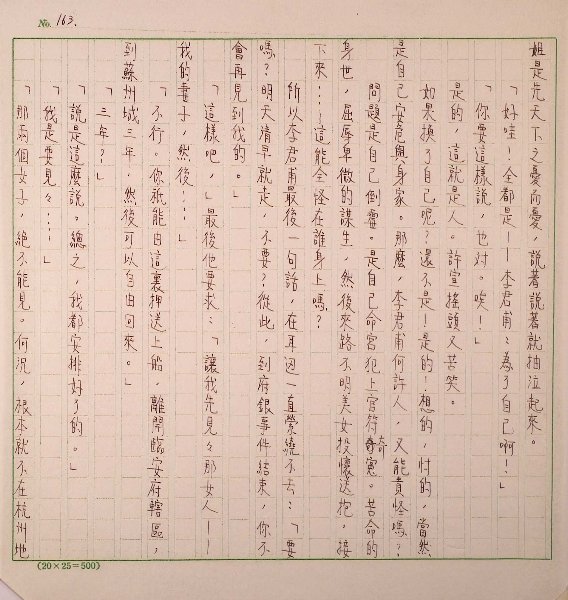 No. 163.
姐是先天下之憂而憂,說著說著就抽泣起來。
「好哇!全都是——李君甫:為了自己啊!」
「你要這樣說,也对。唉!」
是的,這就是人。許宣搖頭又苦笑。
如果換了自己呢?還不是!是的!想的,忖的,當然
是自己安危與身家。那麼,李君甫何許人,又能責怪嗎?
問題是自己倒霉。是自己命宮犯上官符奇冤。苦命的
身世,屈辱卑微的謀生,然後來路不明美女投懷送抱,接
下來……這能全怪在誰身上嗎?
所以李君甫最後一句話,在耳边一直縈繞不去:「要
嗎?明天清早就走,不要?從此,到府銀事件結束,你不
會再見到我的。」
「這樣吧,」最後他要求:「讓我先見々那女人——
我的妻子,然後…」
「不行。你祇能由這裏押送上船,離開臨安府轄區,
到蘇州城三年,然後可以自由回來。」
「三年?」
「說是這麼說。總之,我都安排好了的。」
「我是要見々……」
「那兩個女子,絕不能見。何況,根本就不在杭州地
(20×25=500)